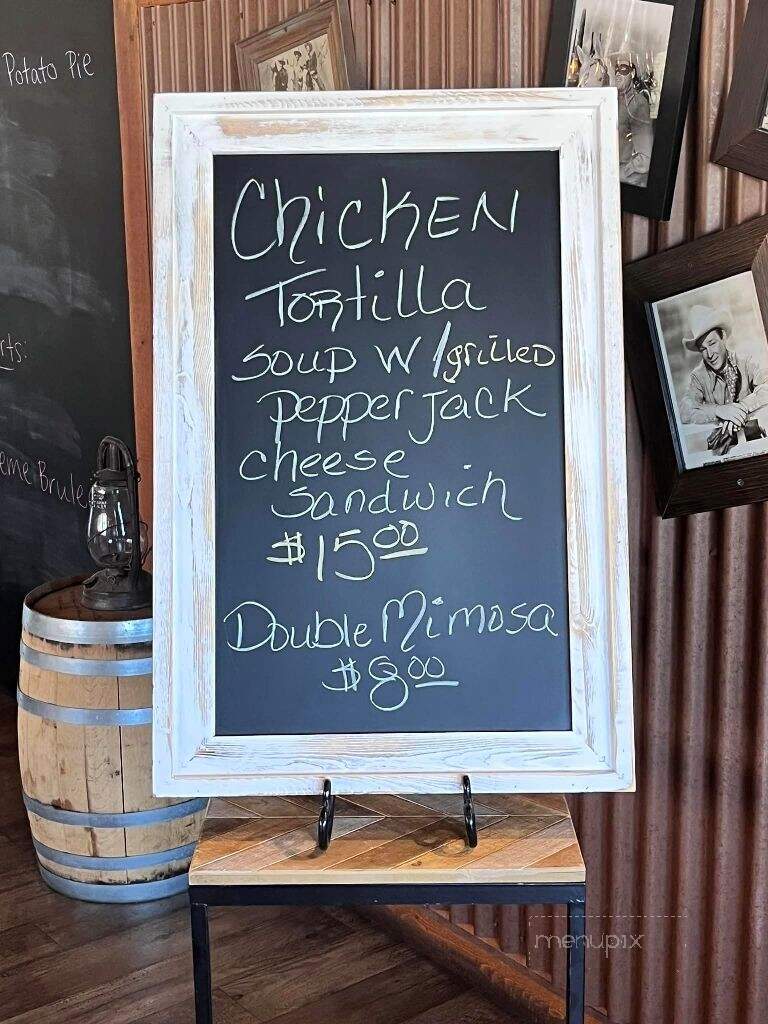 Potato Pie
rts:
eme Brule
ChickEN
Tortilla
Soup w/grilled
pepperjack
cheese
Sandwich
$15.00
Double Mimosa
$8.00
menupix